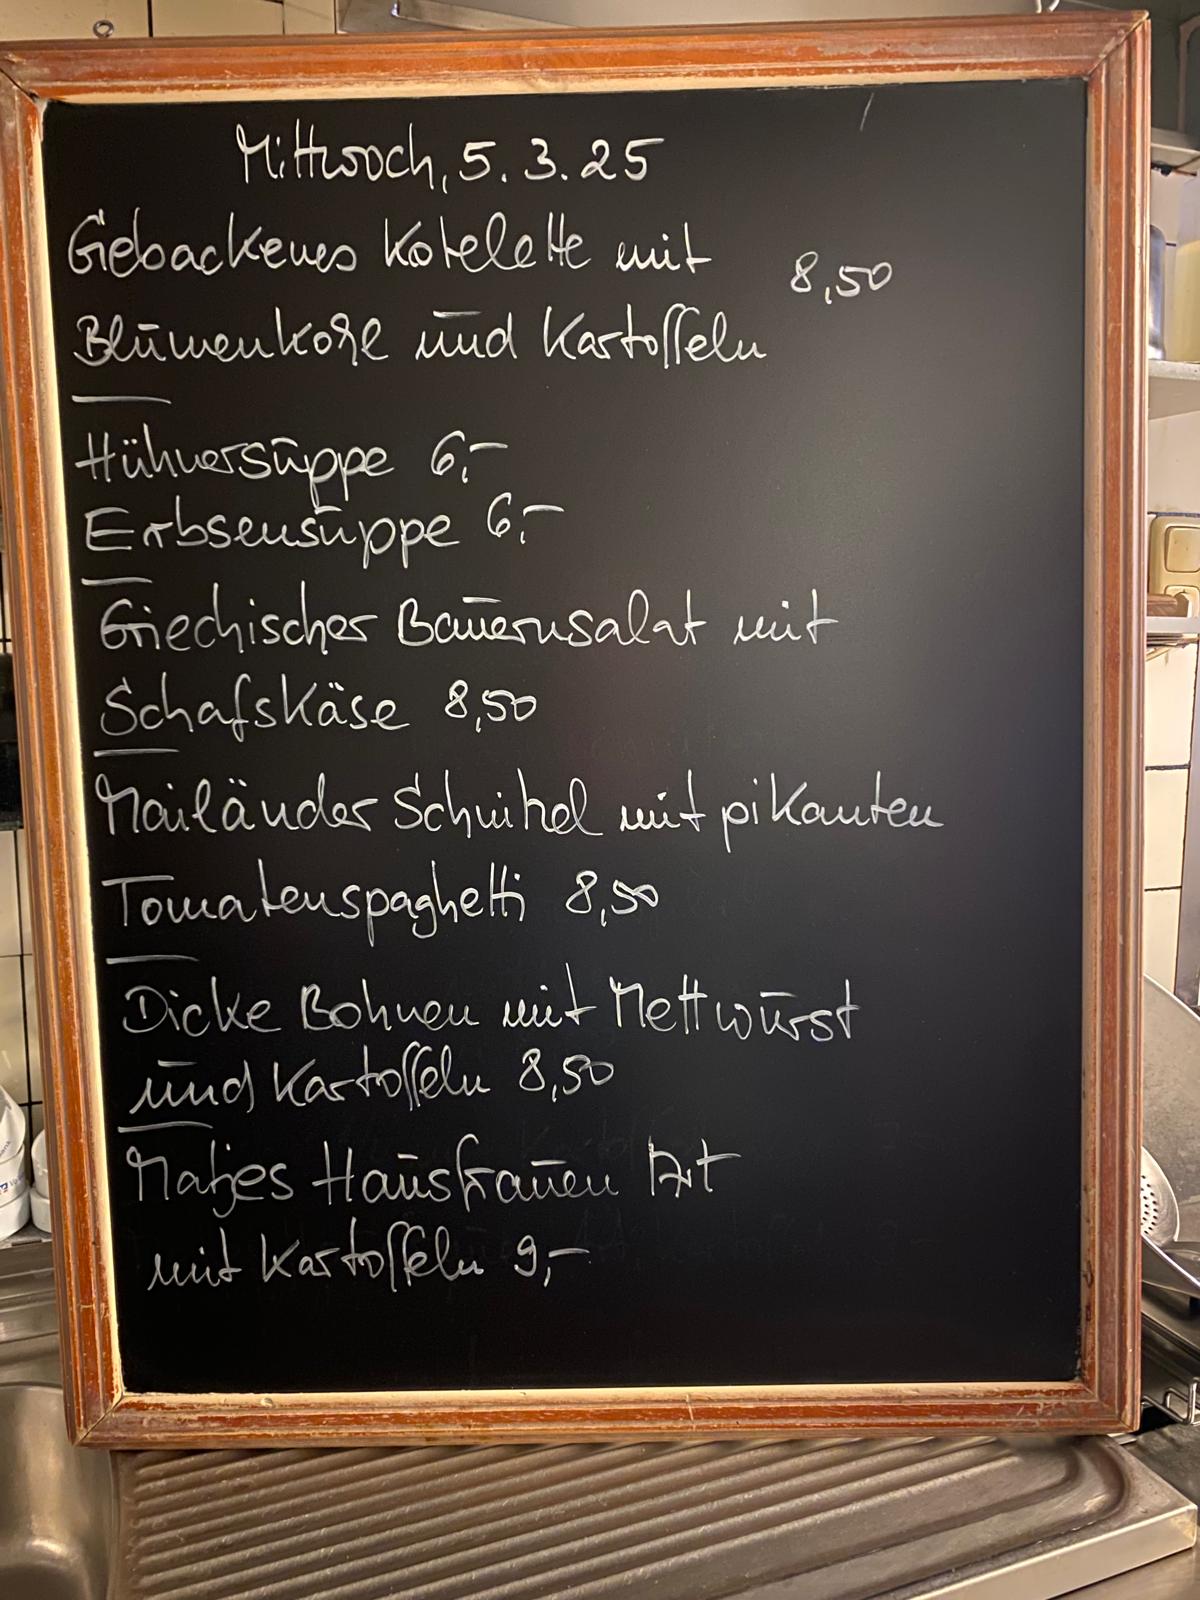 Mittwoch, 5.3.25
Gebackenes Kotelette mit 8,50
Blumenkohl und Kartoffeln
Hühnersuppe 6,-
Erbsensuppe 6,-
Griechischer Bauernsalat mit
Schafskäse 8,50
Mailänder Schnitzel mit pikanten
Tomatenspaghetti 8,50
Dicke Bohnen mit Mettwurst
und Kartoffeln 8,50
Matjes Hausfrauen Art
mit Kartoffeln 9,-